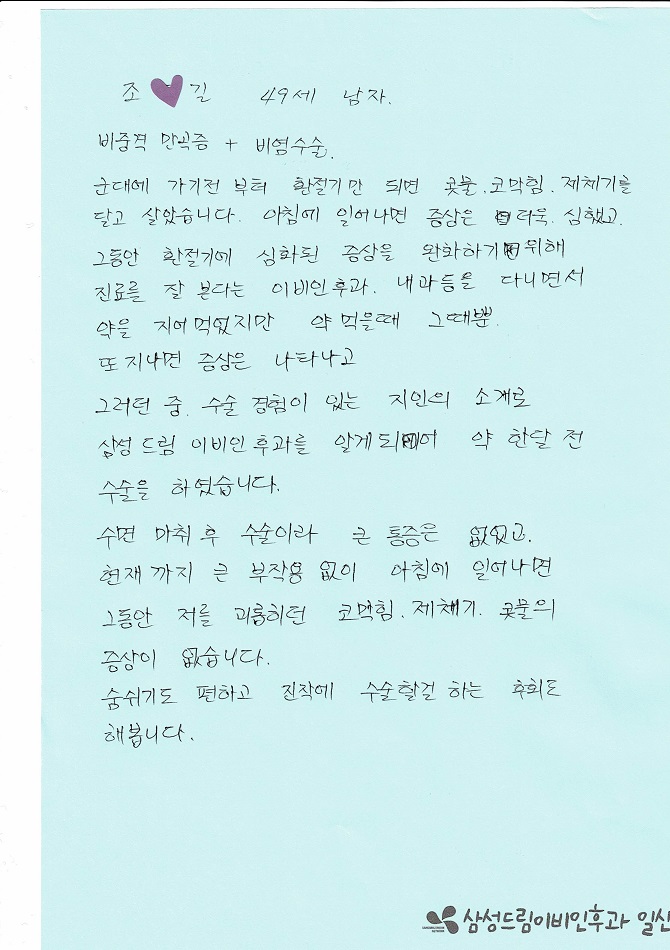 조 길 49세 남자.
비중격 만곡증 + 비염수술.
군대에 가기전 부터 환절기만 되면 콧물. 코막힘. 제채기를
달고 살았습니다. 아침에 일어나면 증상은 더욱. 심했고.
그동안 환절기에 심화된 증상을 완화하기 위해
진료를 잘 본다는 이비인후과. 내과등을 다니면서
약을 지어먹었지만 약 먹을때 그때뿐.
또 지나면 증상은 나타나고
그러던 중. 수술 경험이 있는 지인의 소개로
삼성드림 이비인후과를 알게되어 약 한달 전
수술을 하였습니다.
수면 마취 후 수술이라 큰 통증은 없었고.
현재까지 큰 부작용 없이 아침에 일어나면
그동안 저를 괴롭히던 코막힘. 제채기. 콧물의
증상이 없습니다.
숨쉬기도 편하고 진작에 수술할걸 하는 후회도
해봅니다.
삼성드림이비인후과 일산